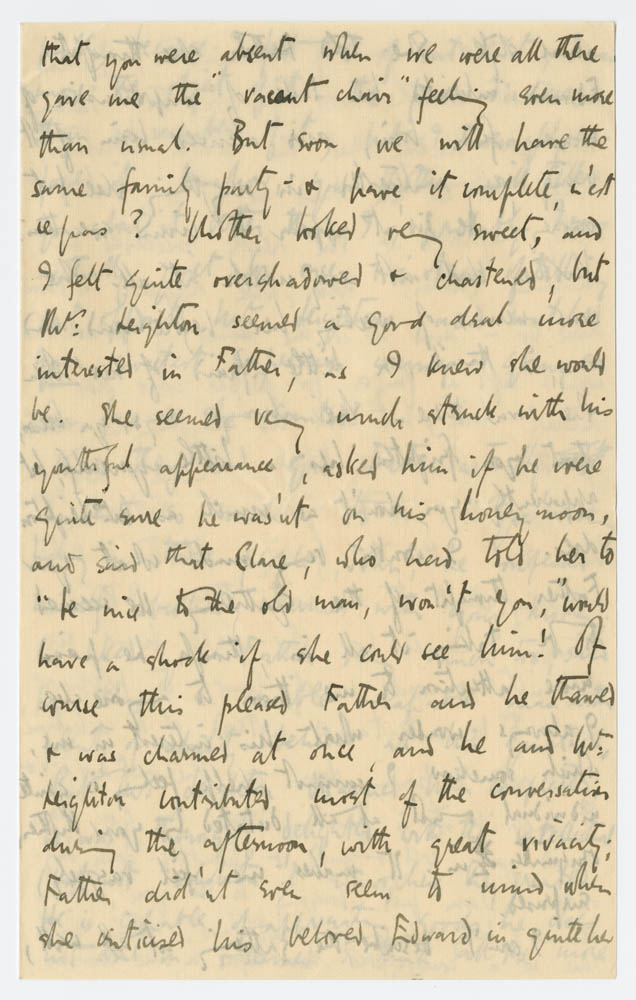 that you were absent when we were all there
gave me the "vacant chair" feeling even more
than usual. But soon we will have the
same family party - & have it complete, n'est
ce pas? Mother looked very sweet, and
I felt quite overshadowed & chastened, but
Mrs. Leighton seemed a good deal more
interested in Father, as I knew she would
be. She seemed very much struck with his
youthful appearance, asked him if he were
quite sure he was'nt on his honeymoon,
and said that Clare, who had told her to
"be nice to the old man, won't you," would
have a shock if she could see him! Of
course this pleased Father and he thawed
& was charmed at once, and he and Mrs.
Leighton contributed most of the conversation
during the afternoon, with great vivacity;
Father did'nt even seem to mind when
she criticised his beloved Edward in quite her